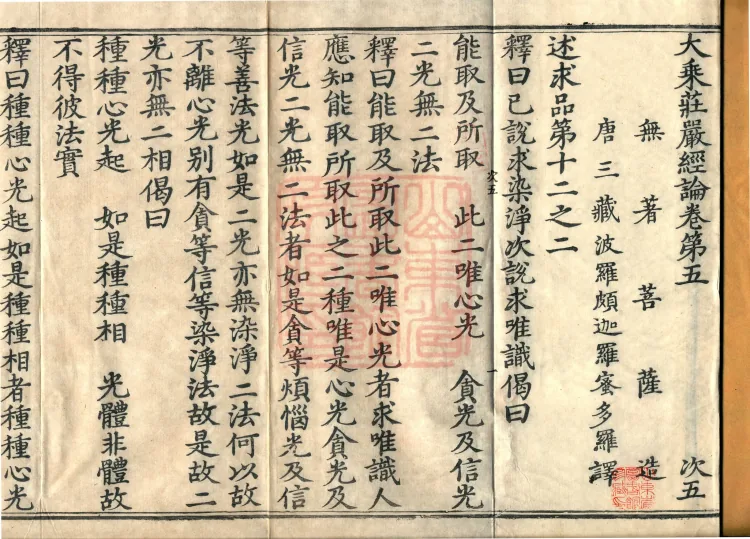 大乘莊嚴經論卷第五 次五
無著菩薩造
唐三藏波羅頗迦羅蜜多羅譯
述求品第十二之二
釋曰已說求染淨次說求唯識偈曰
能取及所取 此二唯心光 貪光及信光
次五 一
二光無二法
釋曰能取及所取此二唯心光者求唯識人
應知能取所取此之二種唯是心光貪光及
信光二光無二法者如是貪等煩惱光及信
等善法光如是二光亦無染淨二法何以故
不離心光別有貪等信等染淨法故是故二
光亦無二相偈曰
種種心光起 如是種種相 光體非體故
不得彼法實
釋曰種種心光起如是種種相者種種心光